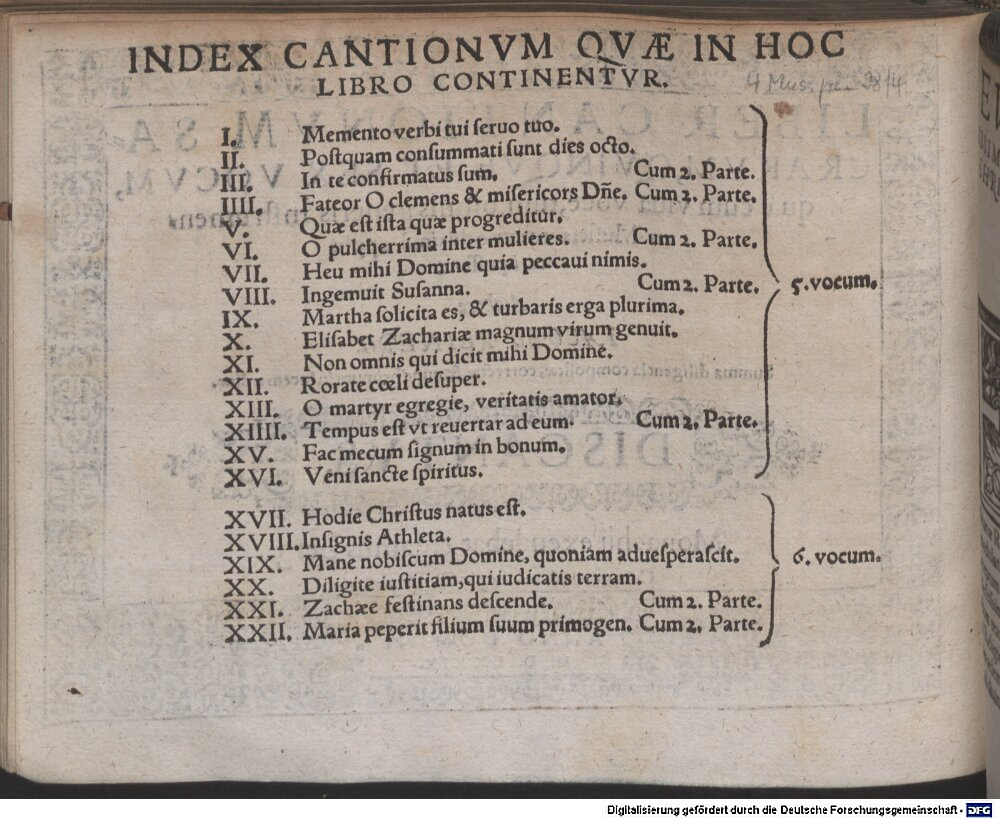 INDEX CANTIONVM QVÆ IN HOC
LIBRO CONTINENTVR.
I. Memento verbi tui ſeruo tuo.
II. Poſtquam conſummati ſunt dies octo.
III. In te confirmatus ſum. Cum 2. Parte.
IIII. Fateor O clemens & miſericors Dñe. Cum 2. Parte.
V. Quæ eſt iſta quæ progreditur.
VI. O pulcherrima inter mulieres. Cum 2. Parte.
VII. Heu mihi Domine quia peccaui nimis.
VIII. Ingemuit Suſanna. Cum 2. Parte.
IX. Martha ſolicita es, & turbaris erga plurima.
X. Eliſabet Zachariæ magnum virum genuit.
XI. Non omnis qui dicit mihi Domine.
XII. Rorate cœli deſuper.
XIII. O martyr egregie, veritatis amator.
XIIII. Tempus eſt vt reuertar ad eum. Cum 2. Parte.
XV. Fac mecum ſignum in bonum.
XVI. Veni ſancte ſpiritus.
5. vocum.
XVII. Hodie Chriſtus natus eſt.
XVIII. Inſignis Athleta.
XIX. Mane nobiſcum Domine, quoniam adueſperaſcit.
XX. Diligite iuſtitiam, qui iudicatis terram.
XXI. Zachæe feſtinans deſcende. Cum 2. Parte.
XXII. Maria peperit filium ſuum primogen. Cum 2. Parte.
6. vocum.
Digitalisierung gefördert durch die Deutsche Forschungsgemeinschaft - DFG